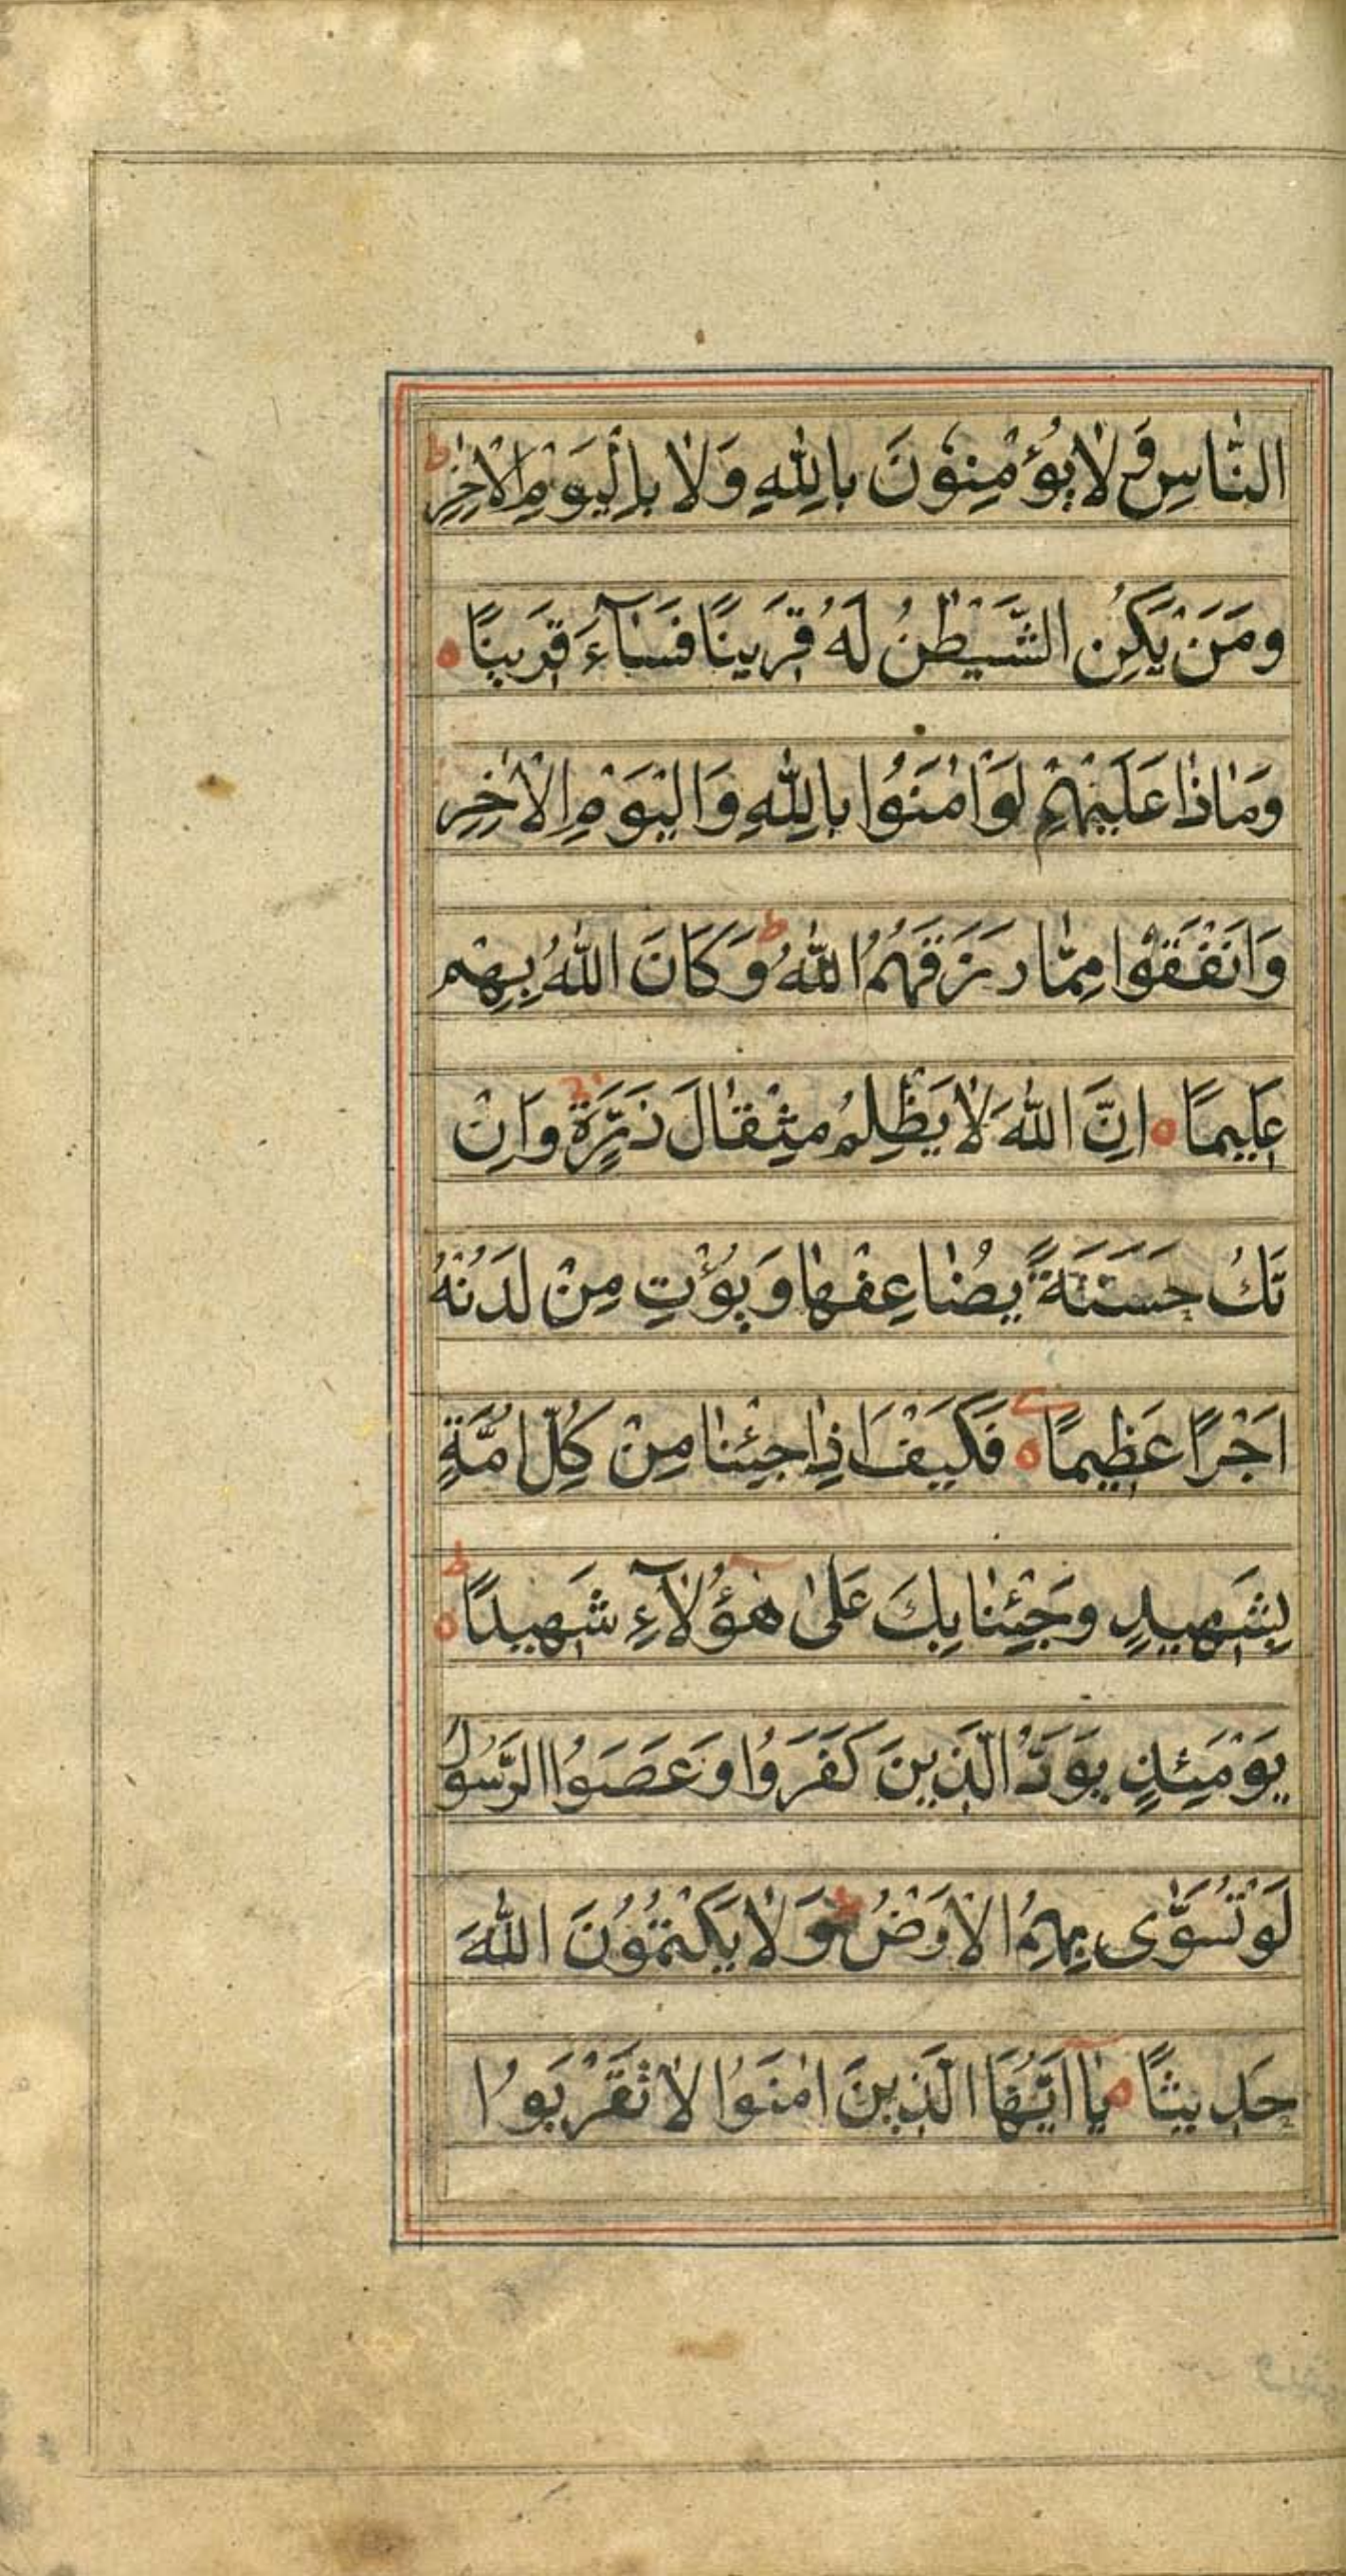 النَّاسِ وَ لَا يُؤْمِنُوْنَ بِاللّٰهِ وَلَا بِالْيَوْمِ الْاٰخِرِ ط
وَمَنْ يَكُنِ الشَّيْطٰنُ لَهُ قَرِيْنًا فَسَآءَ قَرِيْنًا ه
وَمَاذَا عَلَيْهِمْ لَوْ اٰمَنُوْا بِاللّٰهِ وَالْيَوْمِ الْاٰخِرِ
وَاَنْفَقُوْا مِمَّا رَزَقَهُمُ اللّٰهُ ط وَكَانَ اللّٰهُ بِهِمْ
عَلِيمًا ه اِنَّ اللّٰهَ لَا يَظْلِمُ مِثْقَالَ ذَرَّةٍ وَاِنْ
تَكُ حَسَنَةً يُضَاعِفْهَا وَيُؤْتِ مِنْ لَدُنْهُ
اَجْرًا عَظِيمًا ه فَكَيْفَ اِذَا جِئْنَا مِنْ كُلِّ اُمَّةٍ
بِشَهِيدٍ وَجِئْنَا بِكَ عَلٰى هٰؤُلَآءِ شَهِيدًا ه ط
يَوْمَئِذٍ يَوَدُّ الَّذِينَ كَفَرُوا وَعَصَوُا الرَّسُولَ
لَوْ تُسَوّٰى بِهِمُ الْاَرْضُ ط وَلَا يَكْتُمُوْنَ اللّٰهَ
حَدِيثًا ه يَا اَيُّهَا الَّذِينَ اٰمَنُوْا لَا تَقْرَبُوا